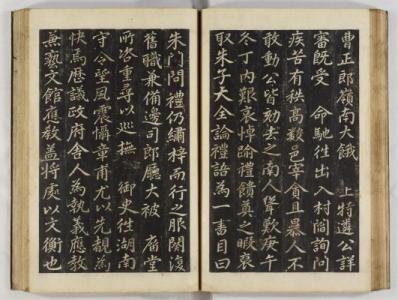 曹正郎嶺南大饑 上特遴公詳
審既受 命馳徃出入村閭詢問
疾苦有秩高數邑宰貪且暴人不
敢動公皆劾去之南人聳歎庚午
冬丁內艱哀悼踰禮饋奠之暇裒
取朱子大全論禮語為一書目曰
朱門問禮仍繡梓而行之服闋復
舊職兼備邊司郎廳大被 庿堂
所咨重尋以巡撫 御史徃湖南
守令望風震懾章甫尤以先覩為
快焉歷議政府舍人為執義應教
兼藝文館應教盖將處以文衡也